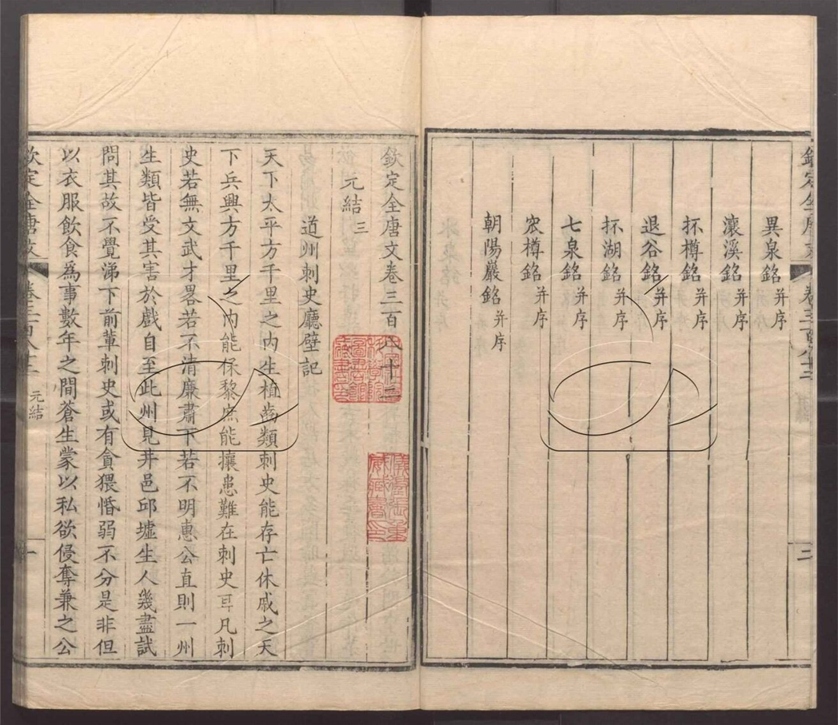 欽定全唐文 卷三百八十二 二
異泉銘并序
瀼溪銘并序
抔樽銘并序
退谷銘并序
抔湖銘并序
七泉銘并序
窊樽銘并序
朝陽巖銘并序
欽定全唐文卷三百八十二
元結三
道州刺史廳壁記
天下太平方千里之内生植齒類刺史能存亡休戚之天
下兵興方千里之内能保黎庶能攘患難在刺史耳凡刺
史若無文武才畧若不清廉肅下若不明惠公直則一州
生類皆受其害於戲自至此州見井邑邱墟生人幾盡試
問其故不覺涕下前輩刺史或有貪猥惛弱不分是非但
以衣服飲食爲事數年之間蒼生蒙以私欲侵奪兼之公
欽定全唐文 卷三百八十二 元結 一